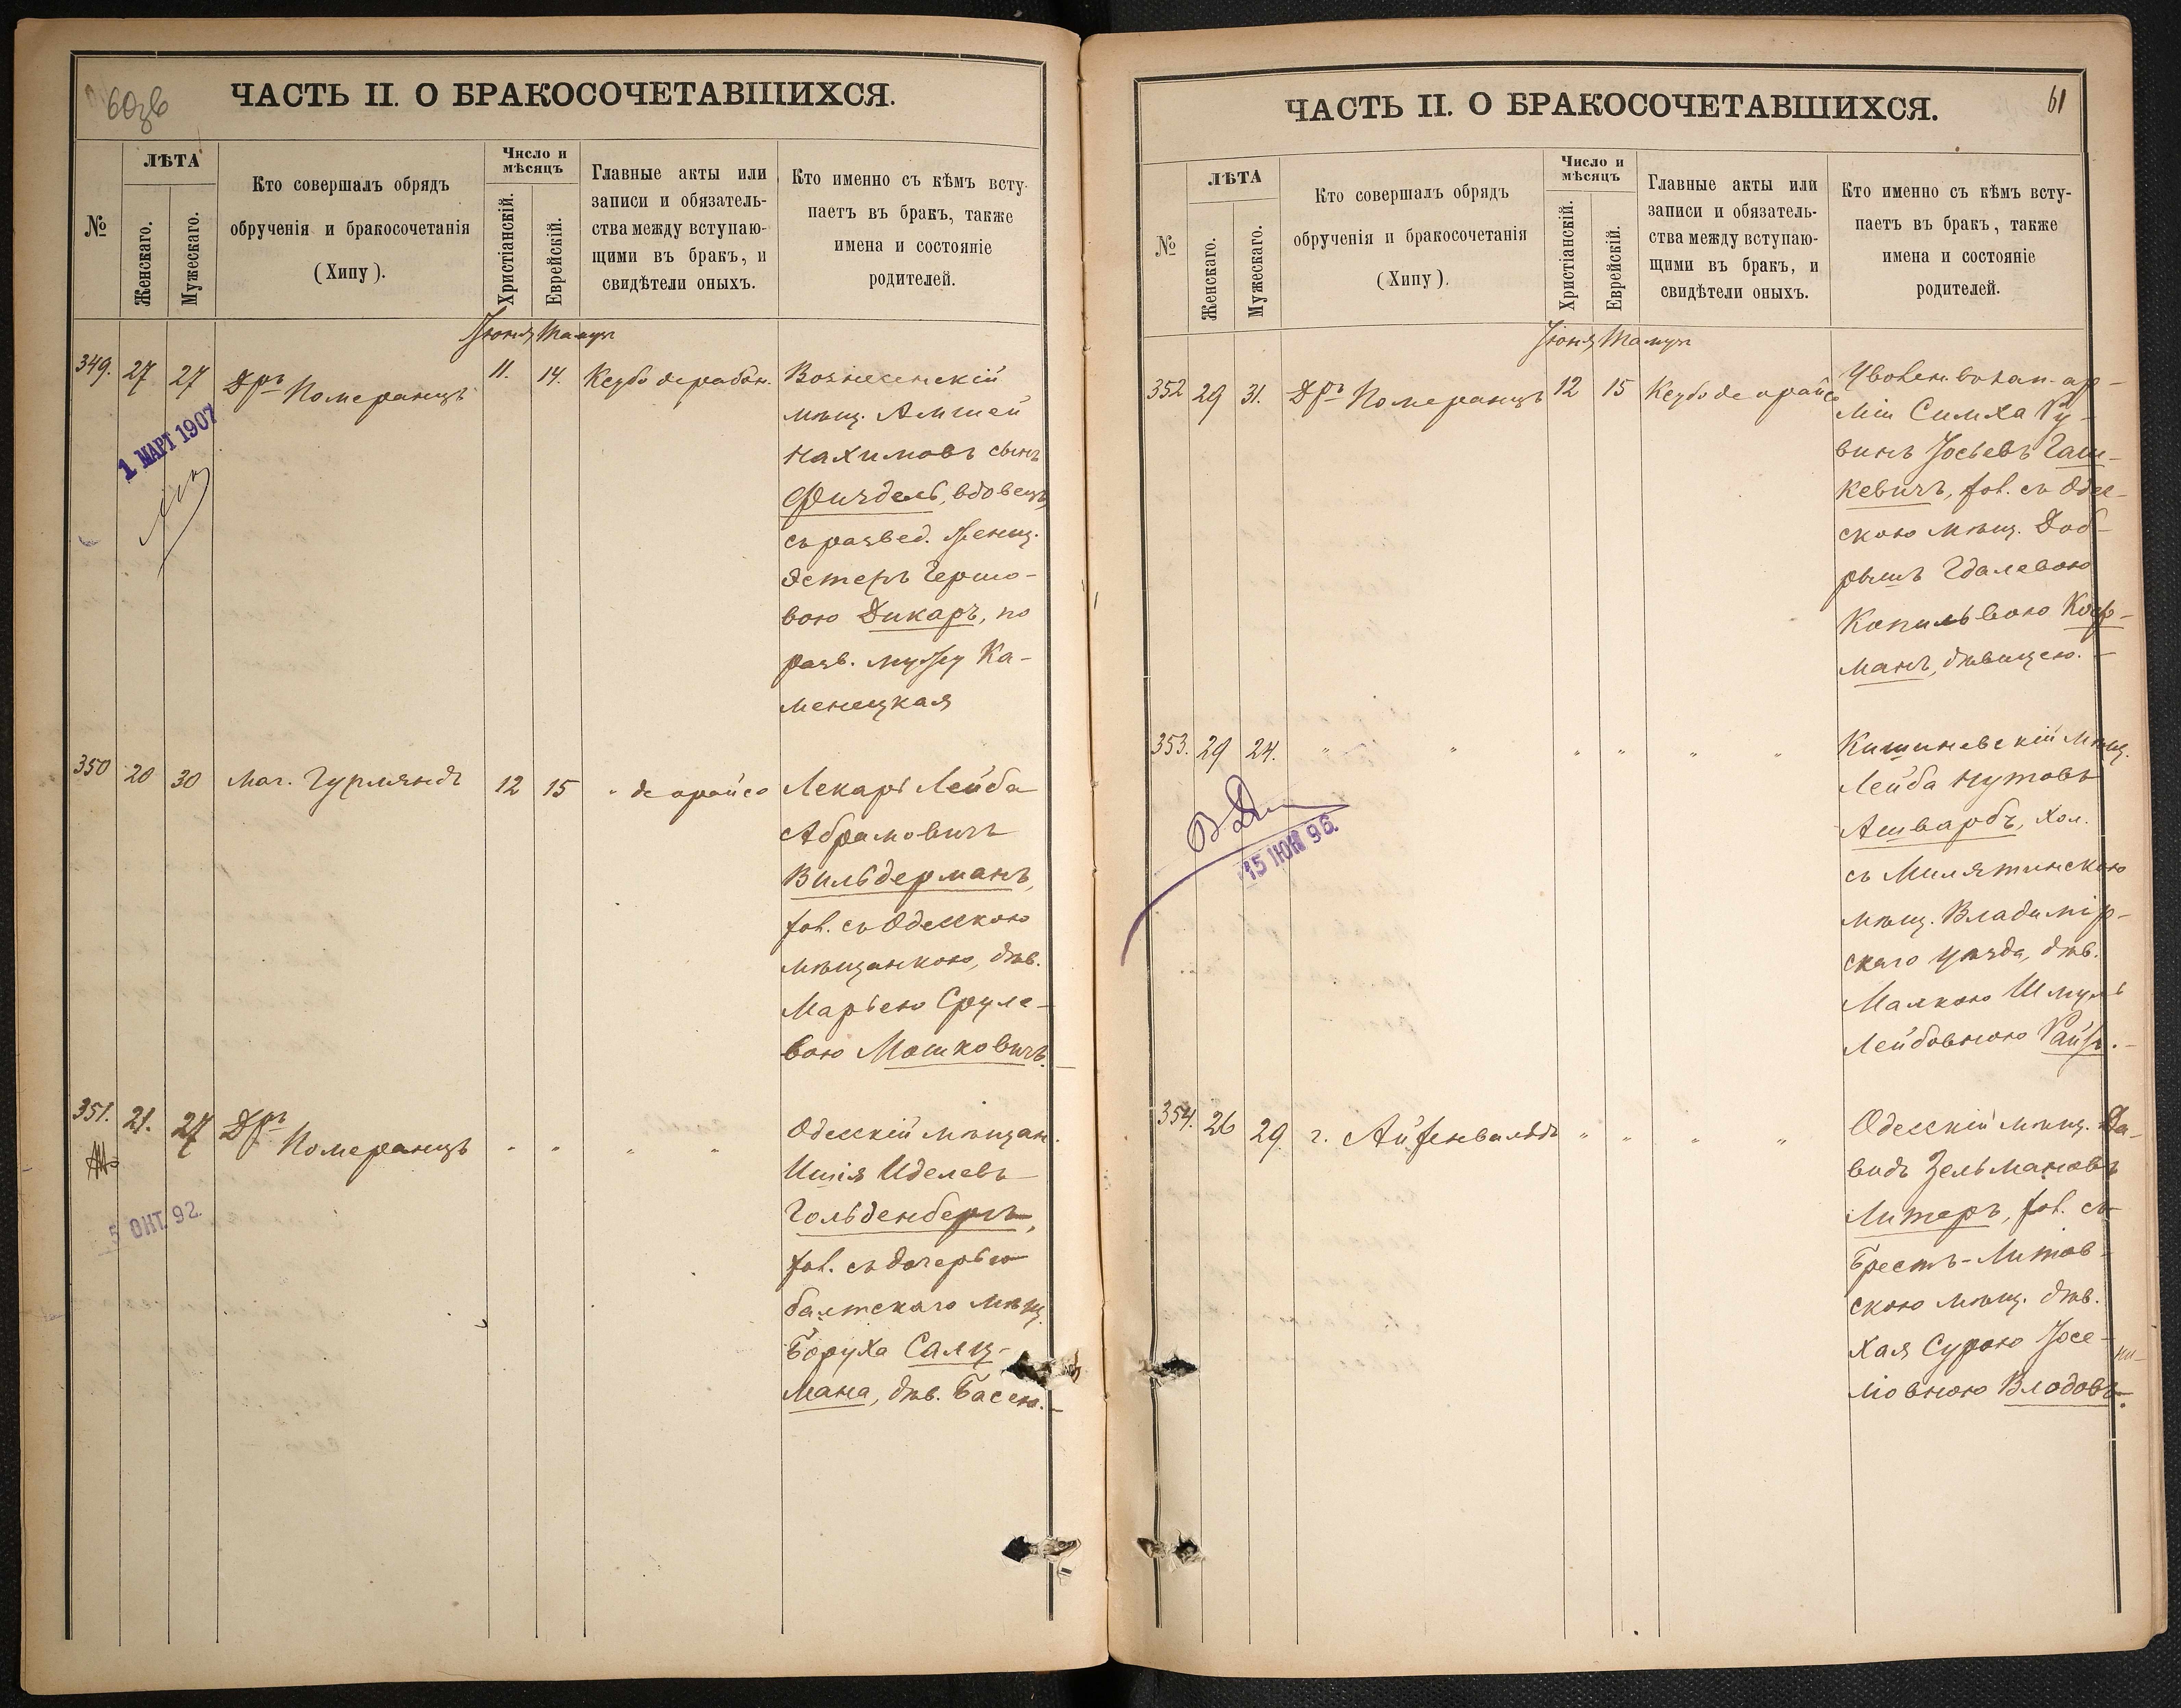 60об
ЧАСТЬ II. О БРАКОСОЧЕТАВШИХСЯ.
№
ЛѢТА
Женскаго.
Мужескаго.
Кто совершалъ обрядъ
обрученія и бракосочетанія
(Хипу).
Число и
мѣсяцъ
Христіанскій.
Еврейскій.
Главные акты или
записи и обязатель-
ства между вступаю-
щими въ бракъ, и
свидѣтели оныхъ.
Кто именно съ кѣмъ всту-
паетъ въ бракъ, также
имена и состояніе
родителей.
Іюня Тамуз
349. 27 27 Дръ Померанцъ 11. 14. Кеубо дерабон.
Вознесенскій
мѣщ. Амшей
Нахимовъ сынъ
Финдель, вдовецъ,
съ развед. женщ.
Эстеръ Гершо-
вою Дикаръ, по
разв. мужу Ка-
менецкая
1 МАРТ 1907
350 20 30 Маг. Гурляндъ 12 15 " де орайсо
Лекарь Лейба
Абрамовичъ
Вильдерманъ,
хол. съ Одесскою
мѣщанкою, дѣв.
Марьею Сруле-
вою Мошковичъ.
351. 21. 27 Дръ Померанцъ " " " "
Одесскій мѣщан.
Ишія Иделевъ
Гольденбергъ,
хол. съ дочерью
балтскаго мѣщ.
Боруха Салц-
мана, дѣв. Басею.
5 ОКТ. 92.
61
ЧАСТЬ II. О БРАКОСОЧЕТАВШИХСЯ.
№
ЛѢТА
Женскаго.
Мужескаго.
Кто совершалъ обрядъ
обрученія и бракосочетанія
(Хипу).
Число и
мѣсяцъ
Христіанскій.
Еврейскій.
Главные акты или
записи и обязатель-
ства между вступаю-
щими въ бракъ, и
свидѣтели оныхъ.
Кто именно съ кѣмъ всту-
паетъ въ бракъ, также
имена и состояніе
родителей.
Іюня Тамуз
352 29 31. Дръ Померанцъ 12 15 Кеубо де орайсо
Уволен. въ зап. ар-
міи Симха Ру-
винъ Іосьевъ Гаш-
кевичъ, хол. съ Одес-
скою мѣщ. Доб-
рышъ Гдалевою
Копильвою Коф-
манъ, дѣвицею.
353. 29 24. " " " " " "
Кишиневскій мѣщ.
Лейба Нутовъ
Ашвардъ, хол.
съ Милятинскою
мѣщ. Владимір-
скаго уѣзда, дѣв.
Малкою Шмуль
Лейбовною Райзъ.
15 ЮН 96.
354. 26 29. г. Айзенвальдъ " " " "
Одесскій мѣщ. Да-
видъ Зельмановъ
Литеръ, хол. съ
Брестъ-Литов-
скою мѣщ. дѣв.
Хая Сурою Іосе-
ліовною Влодовъ.